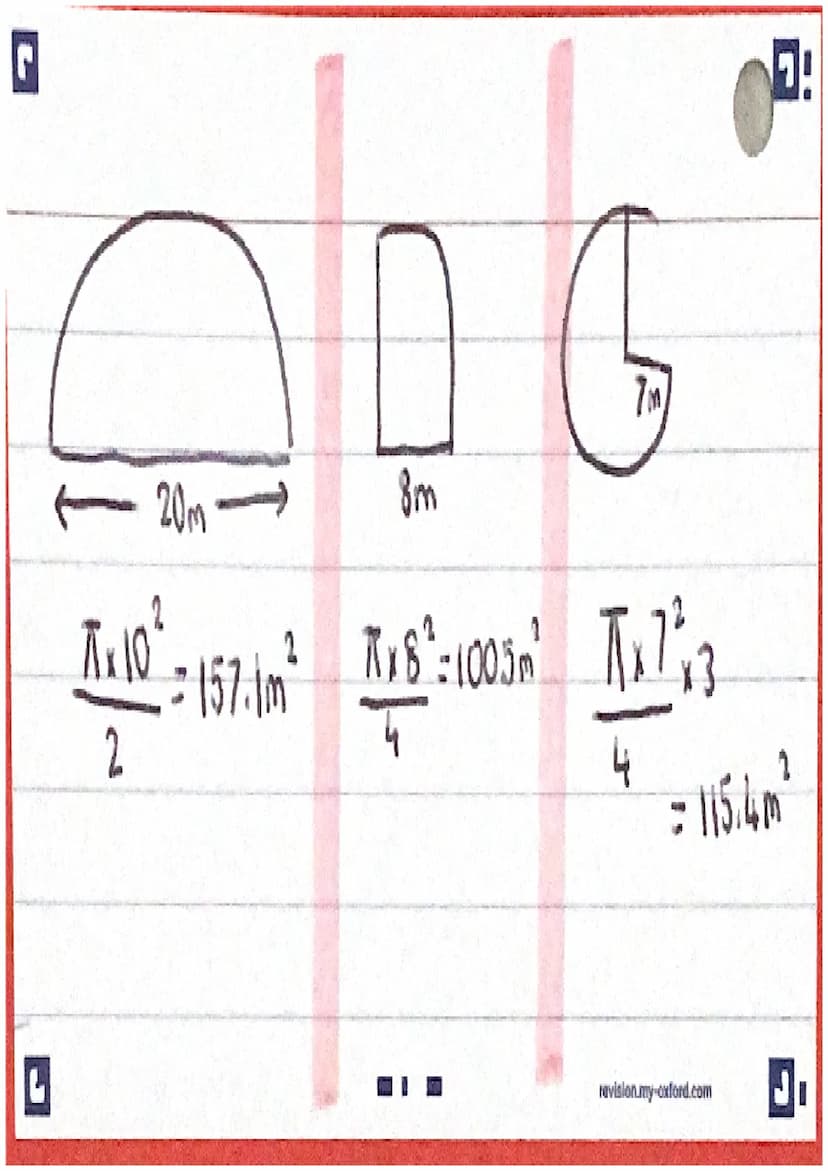 20m
π×10²/2 = 157.1m²
8m
π×8²/4 = 100.5m²
7m
π×7²/4 ×3
= 115.4m²
revision.my-oxford.com